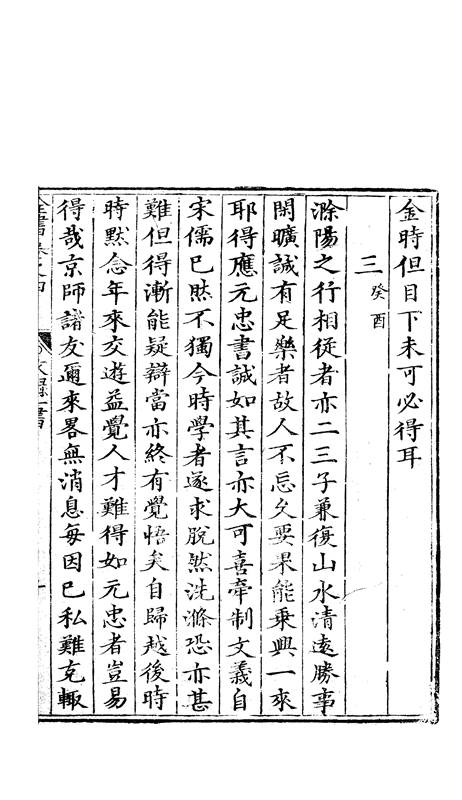 金時但目下未可必得耳
三癸酉
滁陽之行相從者亦二三子兼復山水清遠勝事
閒曠誠有足樂者故人不忘久要果能乗興一來
耶得應元忠書誠如其言亦大可喜牽制文義自
宋儒已㸃不獨今時學者遂求脫然洗滌恐亦甚
難但得漸能疑辯當亦終有覺悟矣自歸越後時
時黙念年來交遊益覺人才難得如元忠者豈易
得哉京師諸友邇來畧無消息每因已私難克輙